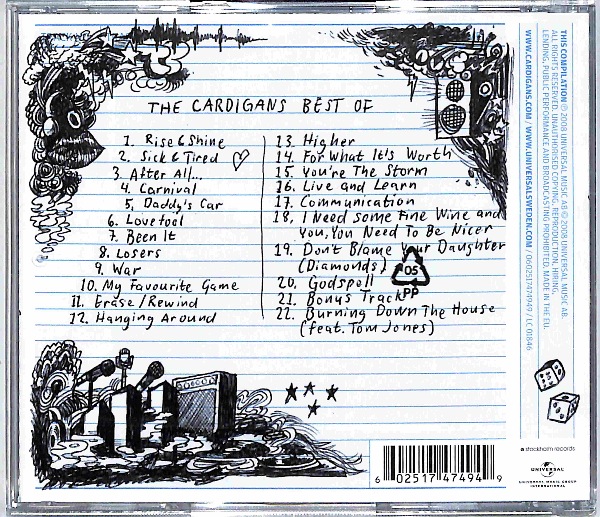 THE CARDIGANS BEST OF
1. Rise & Shine
2. Sick & Tired
3. After All...
4. Carnival
5. Daddy's Car
6. Lovefool
7. Been It
8. Losers
9. War
10. My Favourite Game
11. Erase/Rewind
12. Hanging Around
13. Higher
14. For What It's Worth
15. You're The Storm
16. Live and Learn
17. Communication
18. I Need Some Fine Wine and
You, You Need To Be Nicer
19. Don't Blame Your Daughter
(Diamonds)
20. Godspell
21. Bonus Track
22. Burning Down The House
(feat. Tom Jones)
05
PP
THIS COMPILATION ℗ 2008 UNIVERSAL MUSIC AB © 2008 UNIVERSAL MUSIC AB.
ALL RIGHTS RESERVED. UNAUTHORISED COPYING, REPRODUCTION, HIRING,
LENDING, PUBLIC PERFORMANCE AND BROADCASTING PROHIBITED. MADE IN THE EU.
WWW.CARDIGANS.COM / WWW.UNIVERSALSWEDEN.COM / 0602517474949 / LC 01846
stockholm records
UNIVERSAL
UNIVERSAL MUSIC GROUP
INTERNATIONAL
6 02517 47494 9